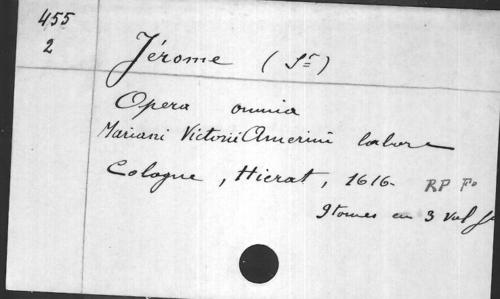 455
2
Jérome (St)
Opera omnia
Mariani Victorii Amerini labore
Cologne, Hierat, 1616. RP Fo
9 tomes en 3 vol fo